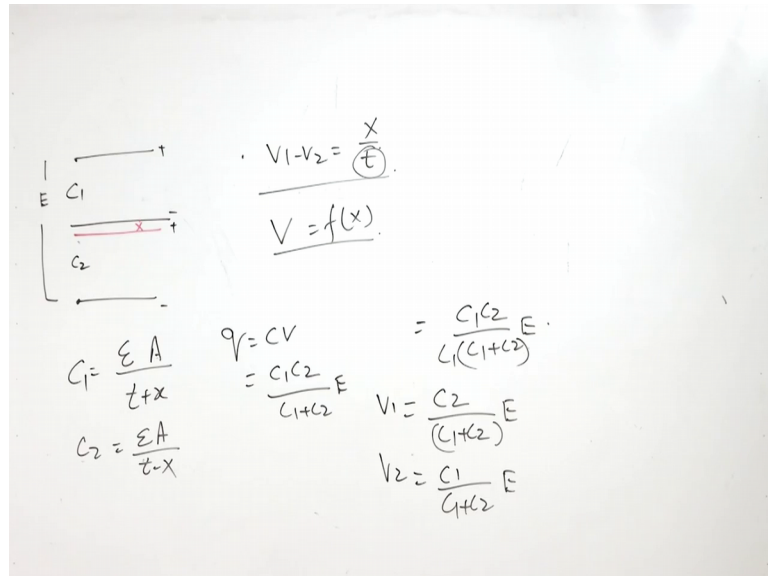 V1-V2 = x/t.
V = f(x).
+
E
C1
-
x
+
C2
-
C1 = εA/(t+x)
C2 = εA/(t-x)
q = CV
= C1C2/(C1+C2) E
= C1C2/(C1(C1+C2)) E.
V1 = C2/(C1+C2) E
V2 = C1/(C1+C2) E